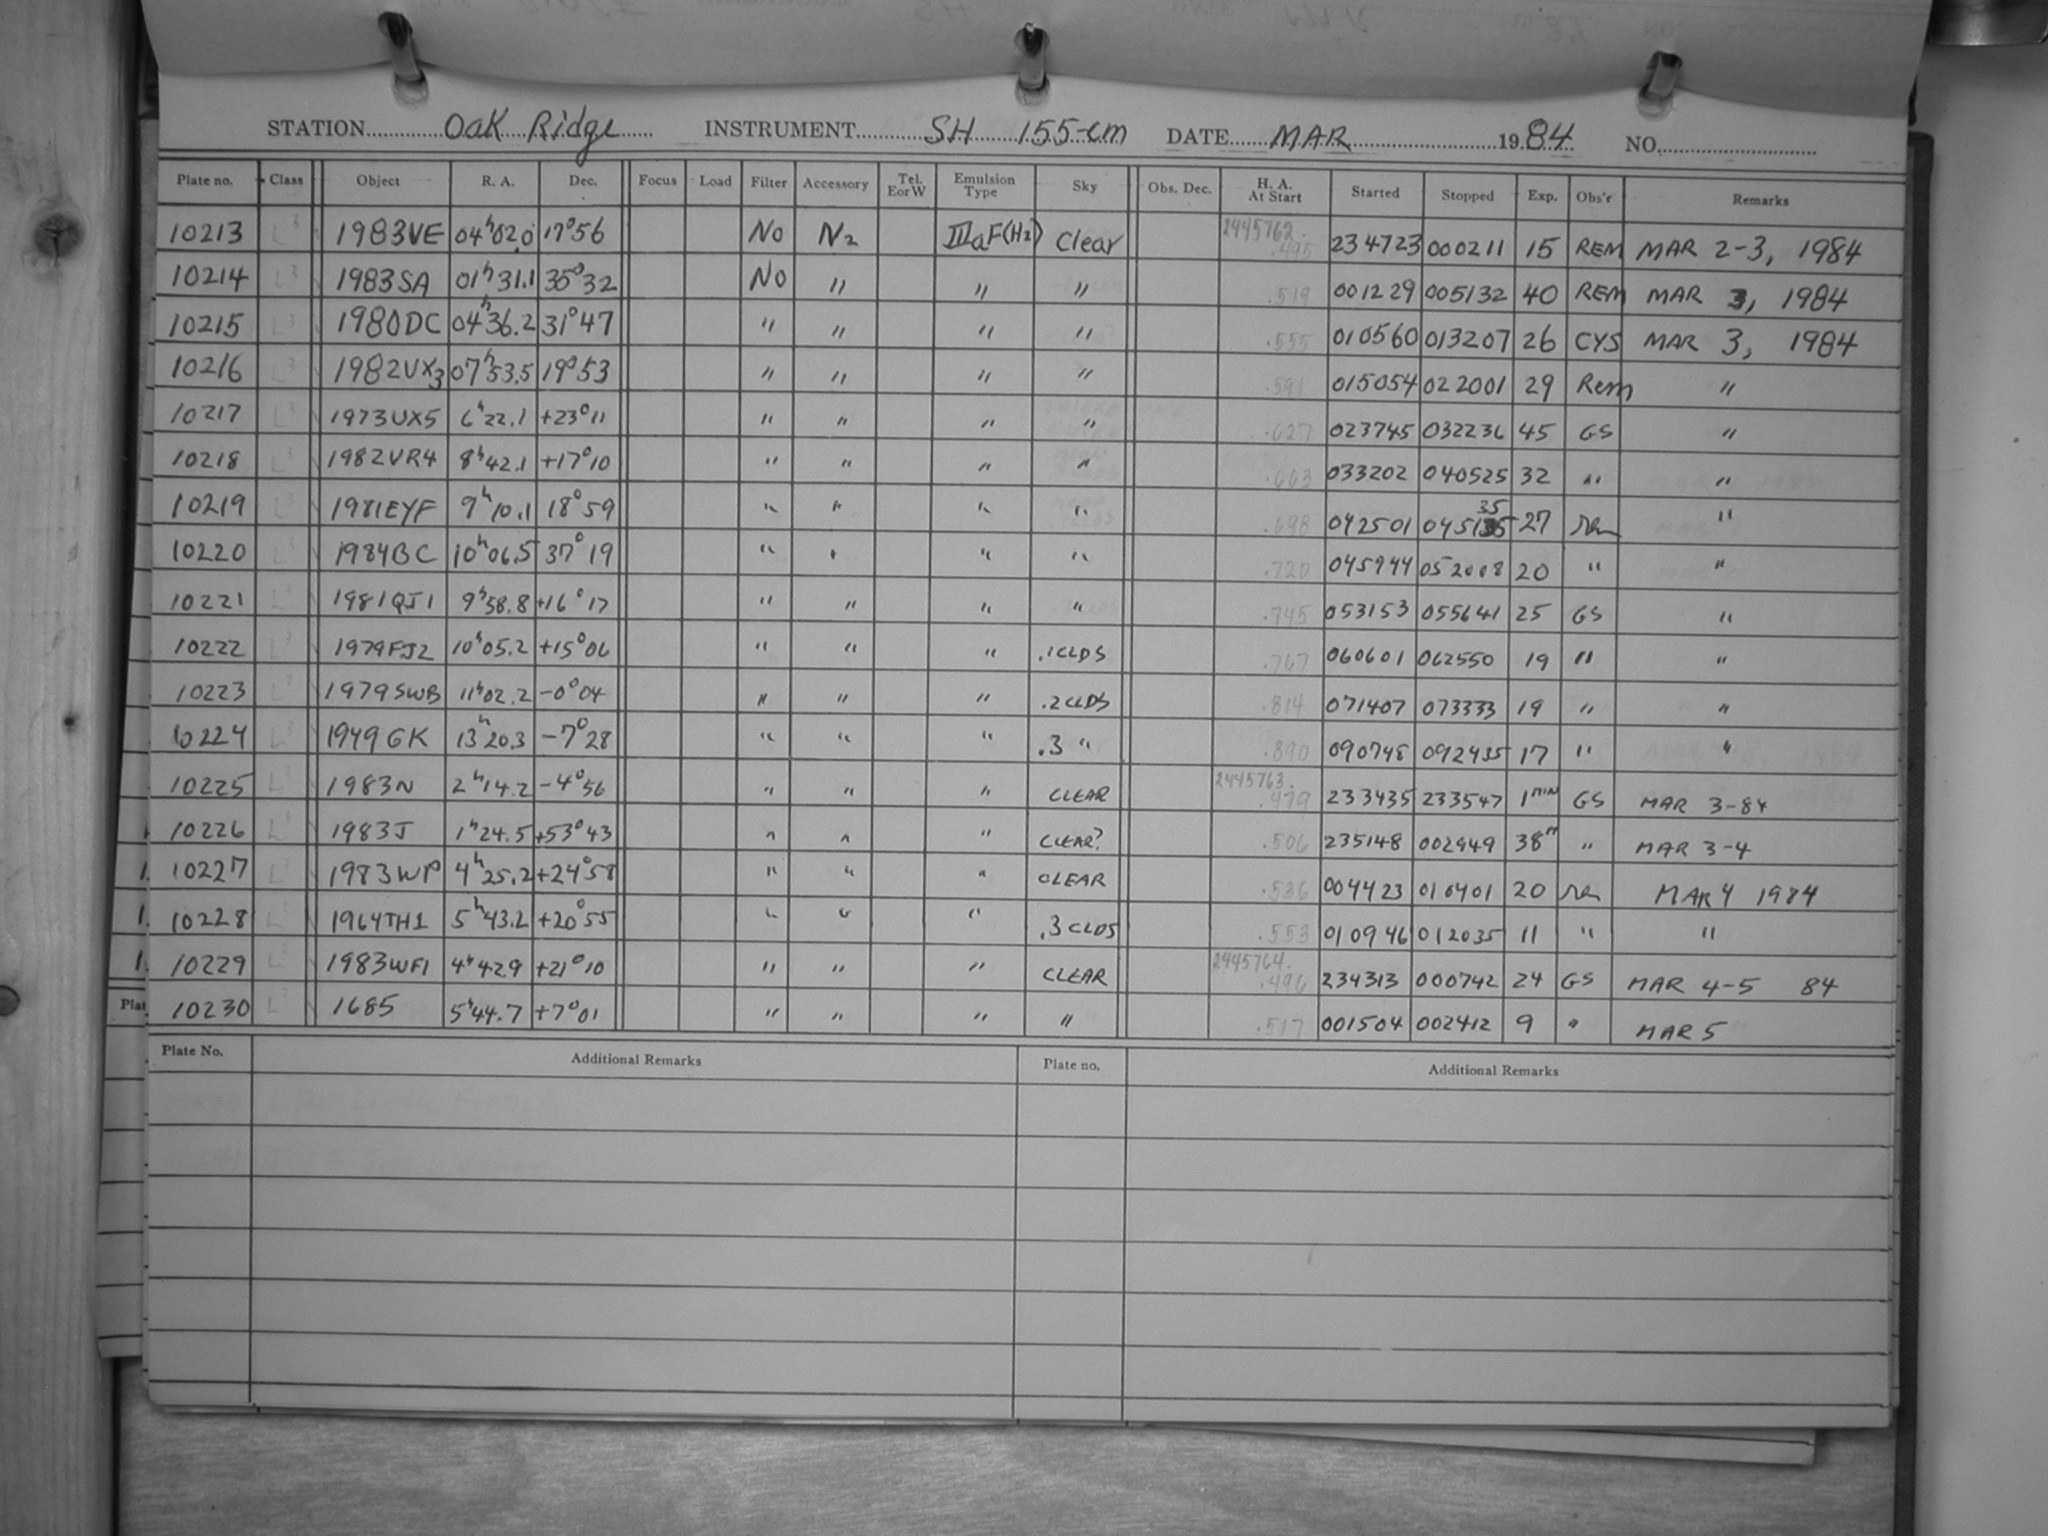 STATION Oak Ridge INSTRUMENT SH 155-cm DATE MAR 1984 NO.
Plate no. Class Object R. A. Dec. Focus Load Filter Accessory Tel. E or W Emulsion Type Sky Obs. Dec. H. A. At Start Started Stopped Exp. Obs'r Remarks
10213 L3 1983VE 04h02.0 17°56 No N2 IIIaF(H2) Clear 2445762. .495 234723 000211 15 REM MAR 2-3, 1984
10214 L3 1983SA 01h31.1 35°32 No " " " .519 001229 005132 40 REM MAR 3, 1984
10215 L3 1980DC 04h36.2 31°47 " " " " .555 010560 013207 26 CYS MAR 3, 1984
10216 L3 1982UX3 07h53.5 19°53 " " " " .591 015054 022001 29 Rem "
10217 L3 1973UX5 6h22.1 +23°11 " " " " .627 023745 032236 45 GS "
10218 L3 1982VR4 8h42.1 +17°10 " " " " .663 033202 040525 32 " "
10219 L3 1981EYF 9h10.1 18°59 " " " " .698 042501 045135 35 27 rem "
10220 L3 1984BC 10h06.5 37°19 " " " " .720 045944 052008 20 " "
10221 L3 1981QJ1 9h58.8 +16°17 " " " " .745 053153 055641 25 GS "
10222 L3 1979FJ2 10h05.2 +15°06 " " " .1CLDS .767 060601 062550 19 " "
10223 L3 1979SWB 11h02.2 -0°04 " " " .2CLDS .814 071407 073333 19 " "
10224 L3 1949GK 13h20.3 -7°28 " " " .3 " .890 090748 092435 17 " "
10225 L3 1983N 2h14.2 -4°56 " " " CLEAR 2445763. .479 233435 233547 1MIN GS MAR 3-84
10226 L3 1983J 1h24.5 +53°43 " " " CLEAR? .506 235148 002949 38m " MAR 3-4
10227 L3 1983WP 4h25.2 +24°58 " " " CLEAR .536 004423 010401 20 rem MAR 4 1984
10228 L3 1964TH1 5h43.2 +20°55 " " " .3 CLDS .553 010946 012035 11 " "
10229 L3 1983WF1 4h42.9 +21°10 " " " CLEAR 2445764. .496 234313 000742 24 GS MAR 4-5 84
10230 L3 1685 5h44.7 +7°01 " " " " .517 001504 002412 9 " MAR 5
Plate No. Additional Remarks Plate no. Additional Remarks